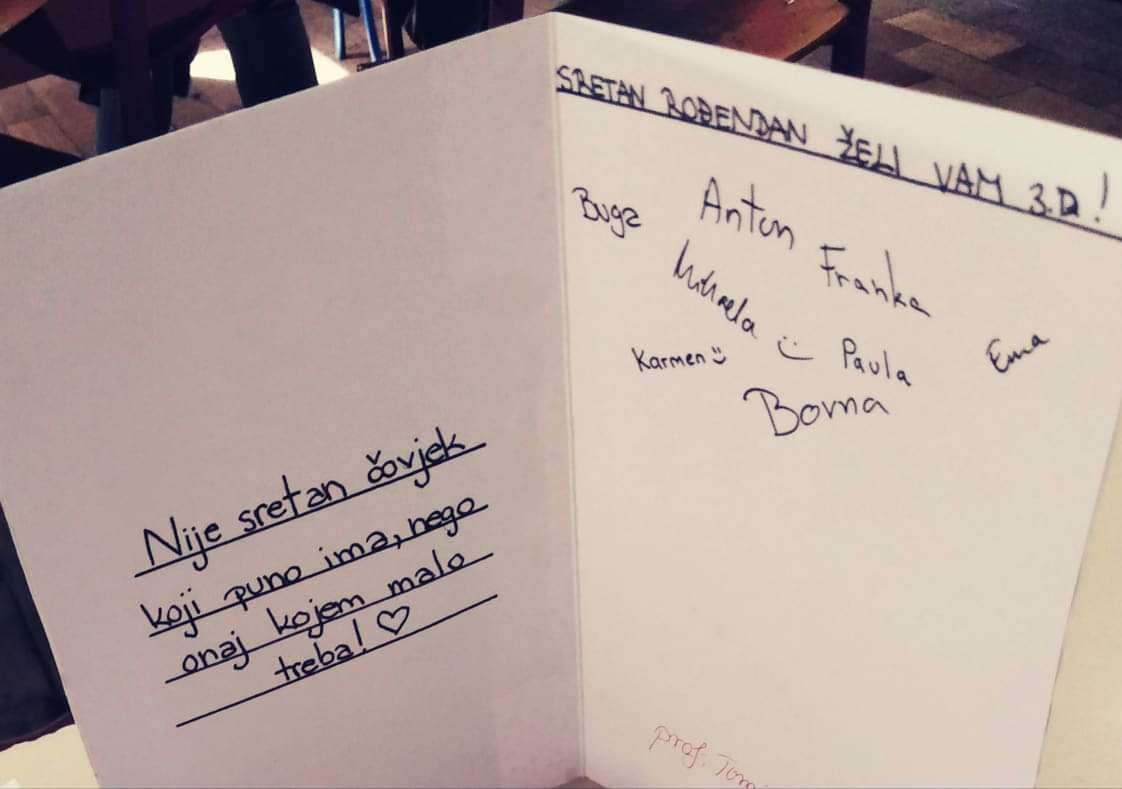 Nije sretan čovjek
koji puno ima, nego
onaj kojem malo
treba! ♡
SRETAN ROĐENDAN ŽELI VAM 3.D!
Buga Anton
Franka
Mihaela
Karmen Paula Ema
Borna
prof.